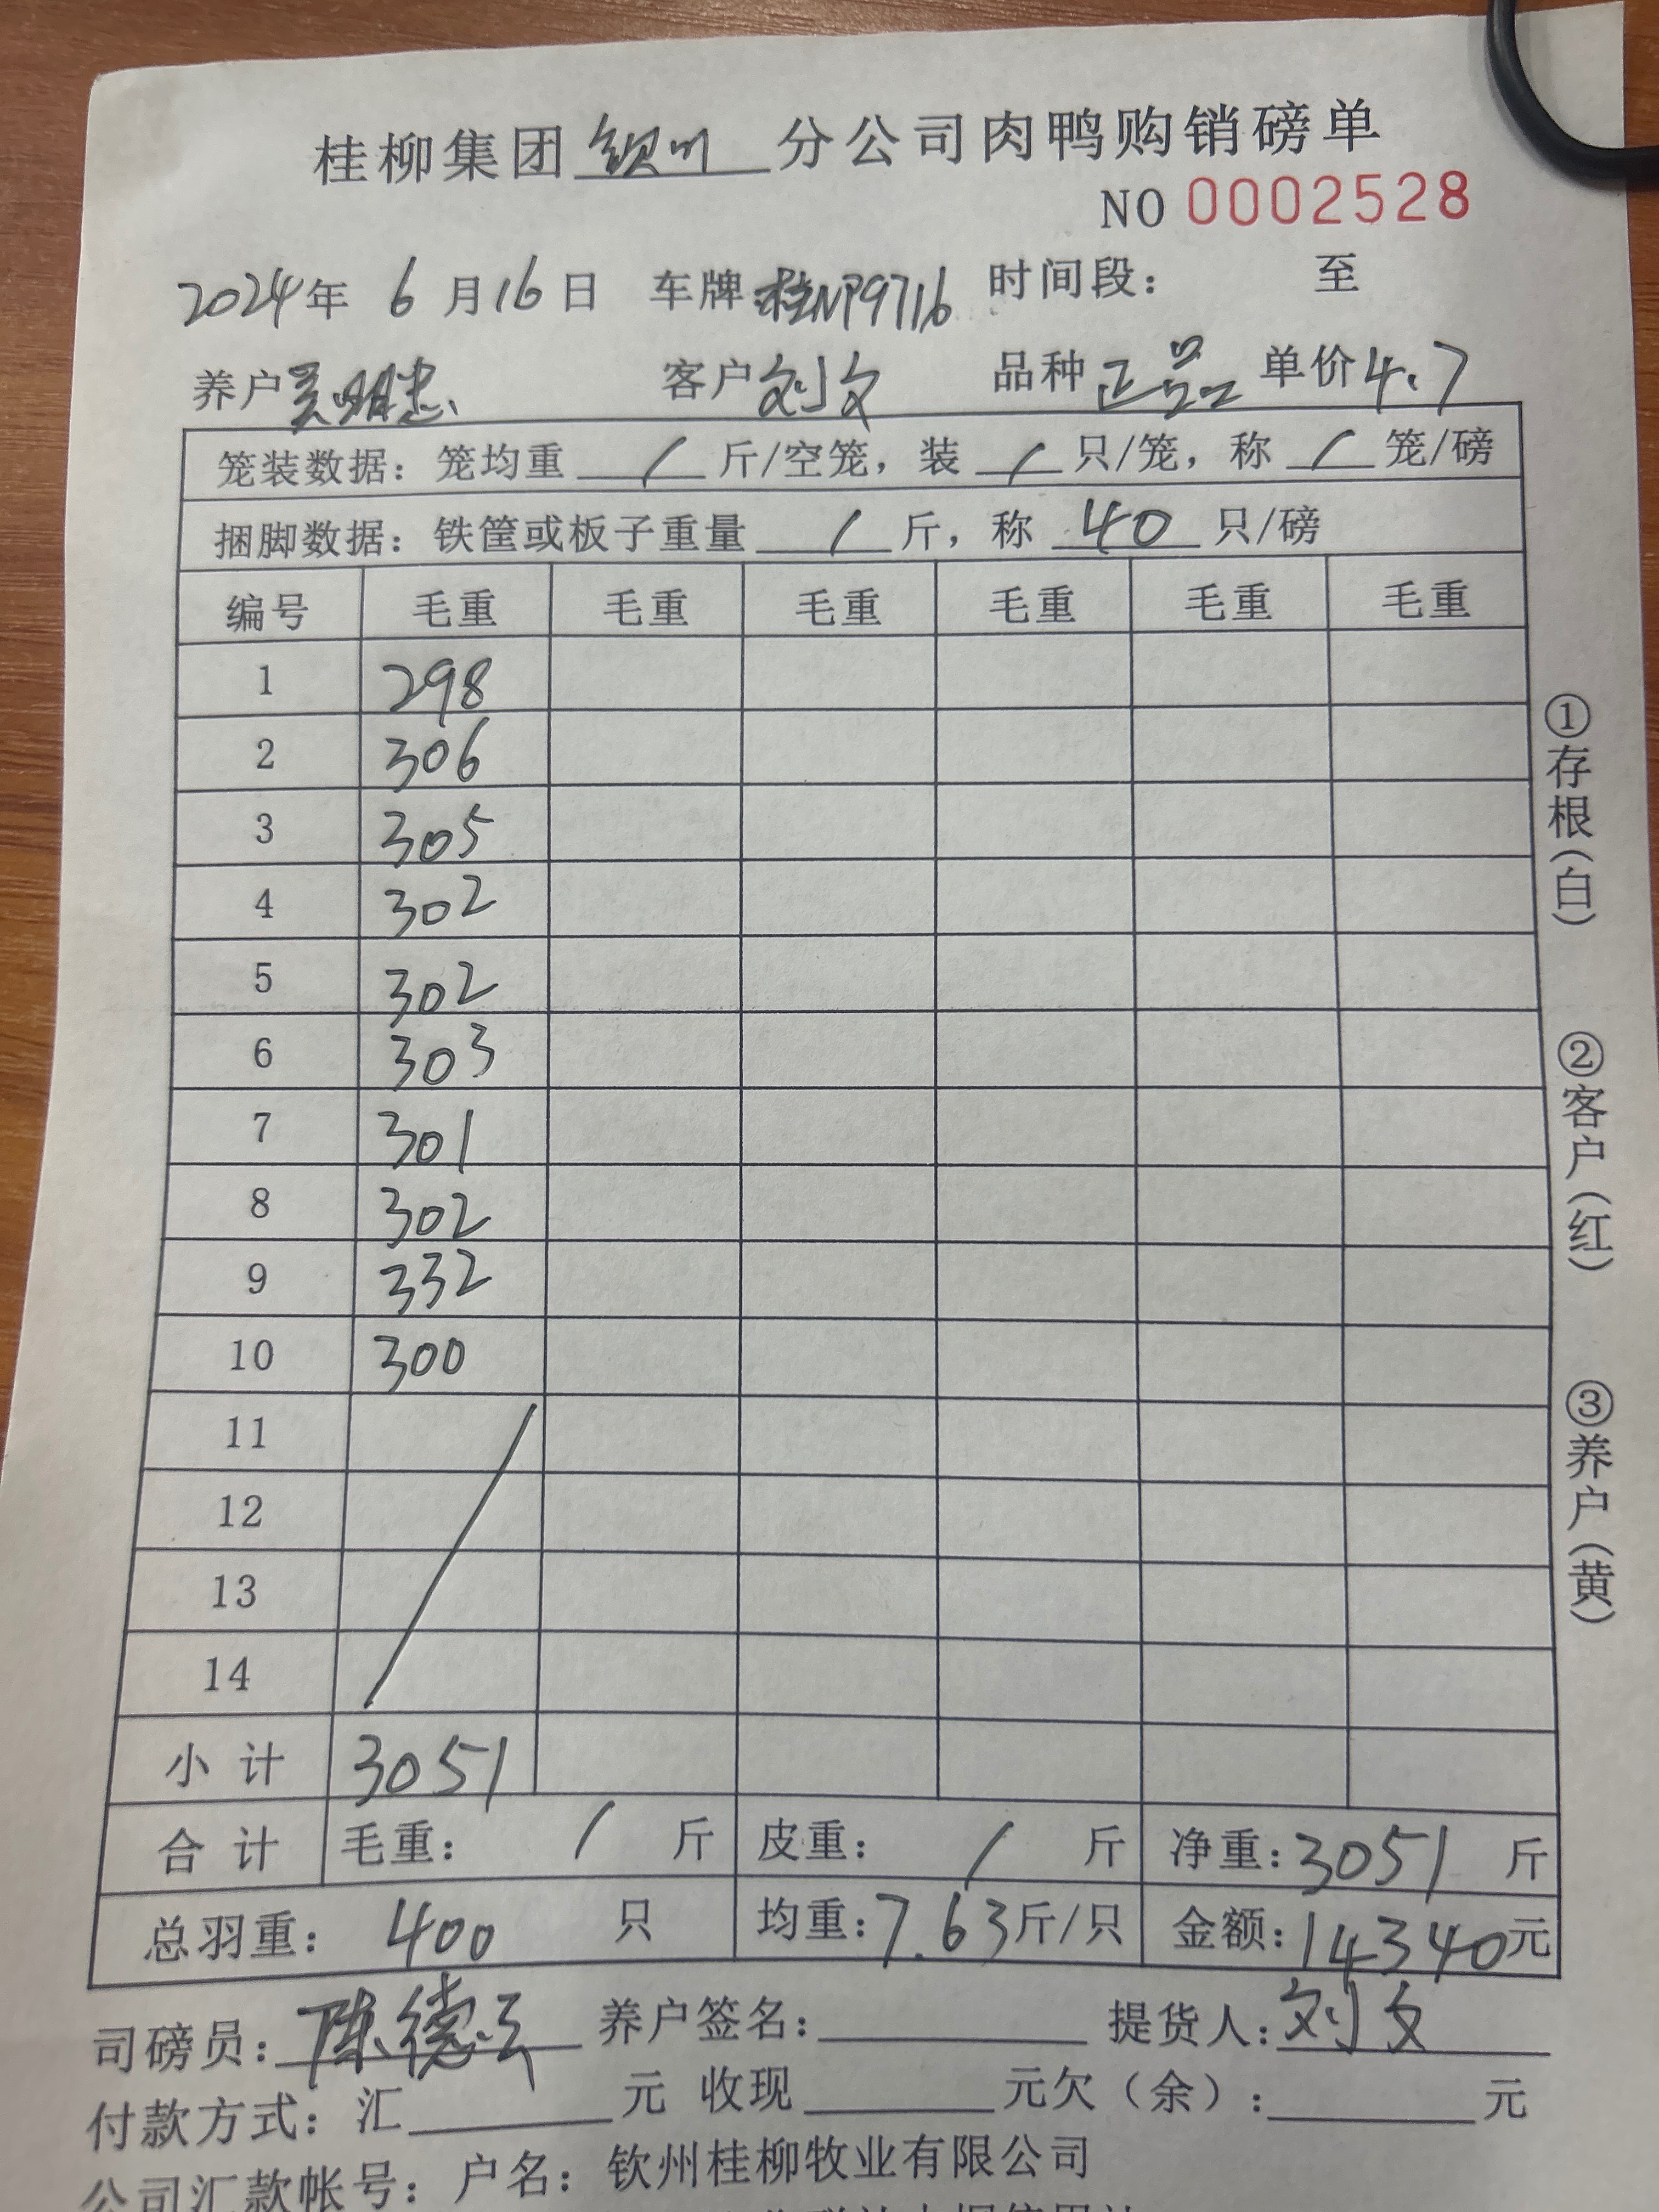 桂柳集团钦州分公司肉鸭购销磅单
NO 0002528
2024年 6月16日 车牌:桂NP9716 时间段: 至
养户吴明忠 客户刘文 品种正品 单价4.7
笼装数据:笼均重 / 斤/空笼,装 / 只/笼,称 / 笼/磅
捆脚数据:铁筐或板子重量 / 斤,称 40 只/磅
编号 毛重 毛重 毛重 毛重 毛重 毛重
1 298
2 306
3 305
4 302
5 302
6 303
7 301
8 302
9 332
10 300
11
12
13
14
小计 3051
合计 毛重: / 斤 皮重: / 斤 净重:3051 斤
总羽重: 400 只 均重:7.63斤/只 金额:14340元
司磅员:陈德云 养户签名: 提货人:刘文
付款方式:汇 元 收现 元欠(余): 元
公司汇款帐号:户名:钦州桂柳牧业有限公司
①存根(白)
②客户(红)
③养户(黄)